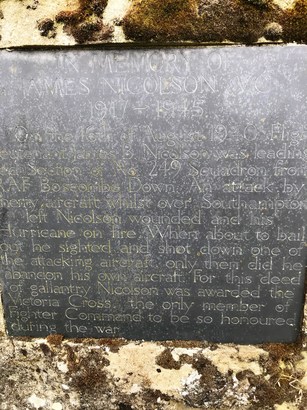 IN MEMORY OF
JAMES NICOLSON V.C.
1917 - 1945
On the 16th of August 1940
Nicolson was leading
Red Section of No. 249 Squadron from
RAF Boscombe Down. An attack by
enemy aircraft whilst over Southampton
left Nicolson wounded and his
Hurricane on fire. When about to bail
out he sighted and shot down one of
the attacking aircraft; only then did he
abandon his own aircraft. For this deed
of gallantry Nicolson was awarded the
Victoria Cross, the only member of
Fighter Command to be so honoured
during the war.